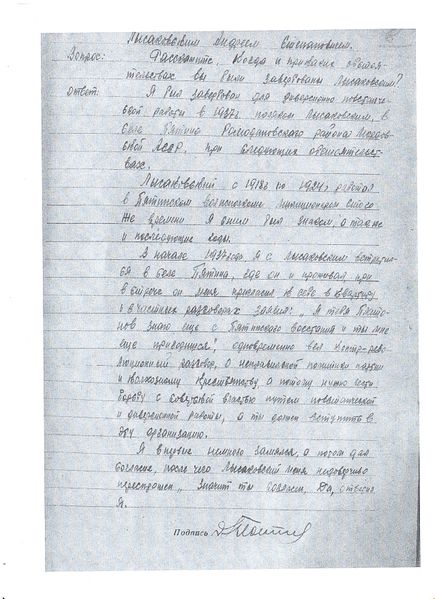 Лысаковским Андреем Степановичем.
Вопрос: Расскажите. Когда и при каких обстоя-
тельствах вы были завербованы Лысаковским?
Ответ: Я был завербован для диверсионно повстанче-
ской работы в 1937г. попом Лысаковским, в
селе Пятина Ромодановского района Мордов-
ской АССР, при следующих обстоятельст-
вах.
Лысаковский с 1918г по 1924г работал
в Пятинском волисполкоме милиционером с того
же времени я с ним был знаком, а также
и последующие годы.
В начале 1937 года, я с Лысаковским встретил-
ся в селе Пятина, где он и проживал при
встрече он меня пригласил к себе в квартиру
в частных разговорах заявил: "Я тебя
знаю еще с Пятинского восстания и ты мне
еще пригодишься", одновременно вел контр-рев-
люционный разговор, о неправильной политики партии
и колхозному крестьянству, а потому нужно вести
борьбу с советской властью путем повстанческой
и диверсионной работы, а ты должен вступить в
эту организацию.
Я впервые немного замялся, а потом дал
согласие, после чего Лысаковский меня недоверчиво
переспросил "Значит ты согласен, Да, ответил
Я.
Подпись